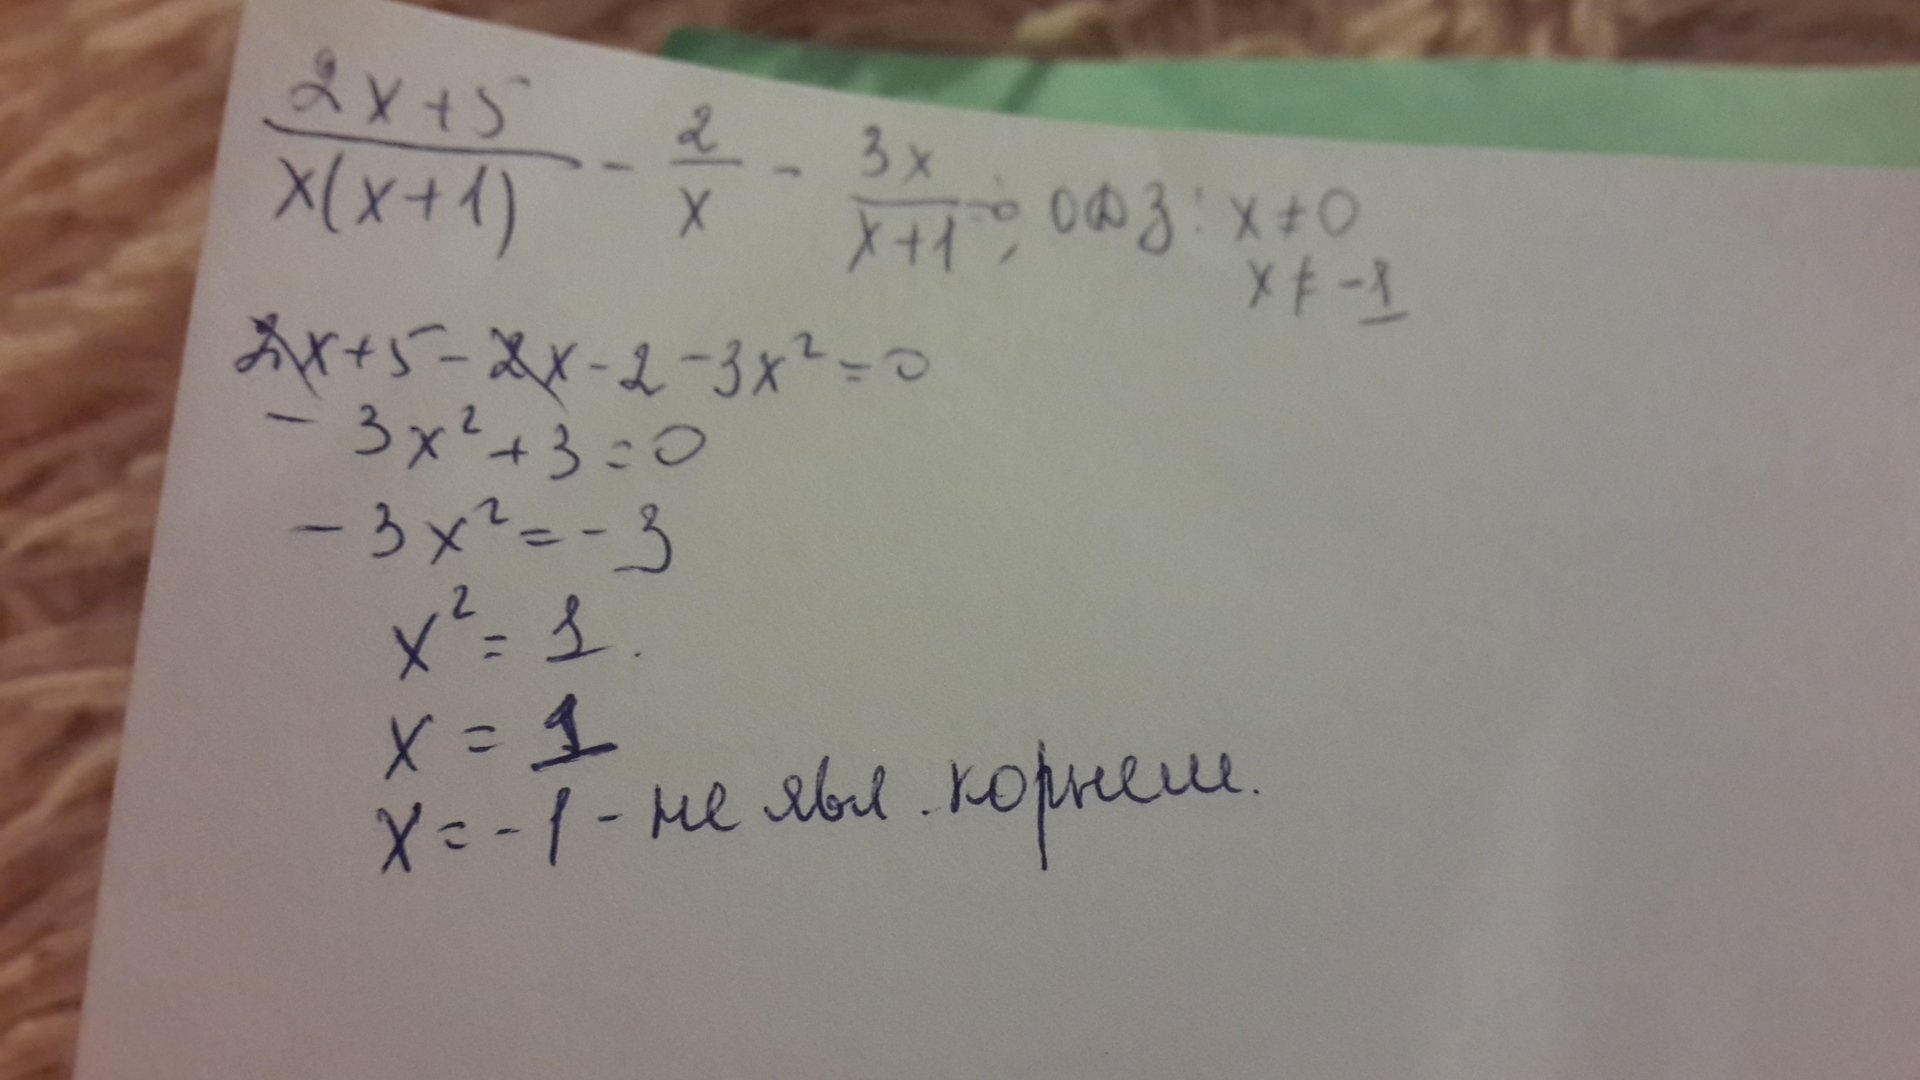 (2x+5)/(x(x+1)) - 2/x - 3x/(x+1) = 0; ОДЗ: x ≠ 0
x ≠ -1
2x+5-2x-2-3x²=0
-3x²+3=0
-3x²=-3
x²=1.
x=1
x=-1 - не явл. корнем.